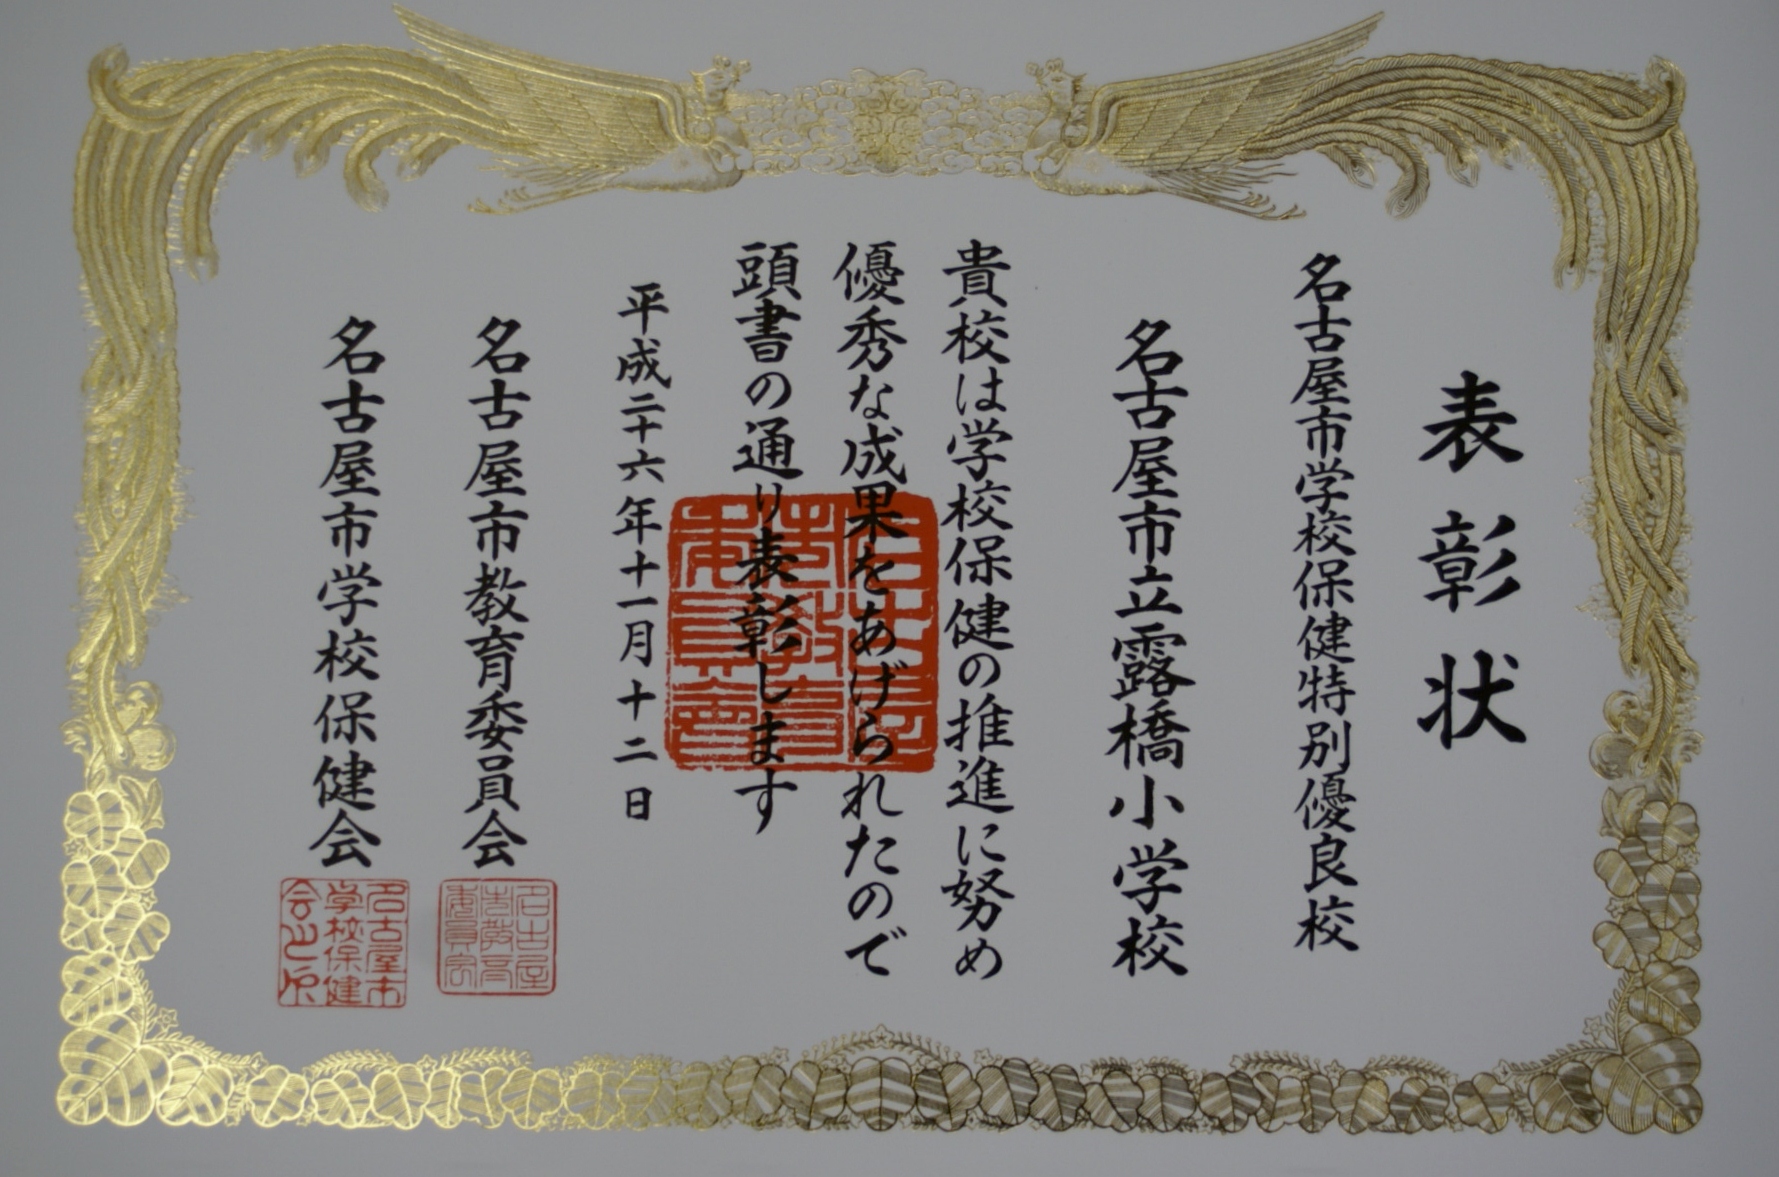 表彰状
名古屋市学校保健特別優良校
名古屋市立露橋小学校
貴校は学校保健の推進に努め
優秀な成果をあげられたので
頭書の通り表彰します
平成二十六年十一月十二日
名古屋市教育委員会
名古屋市学校保健会
名古屋市教育委員会
名古屋市教育委員会
名古屋市学校保健会之印